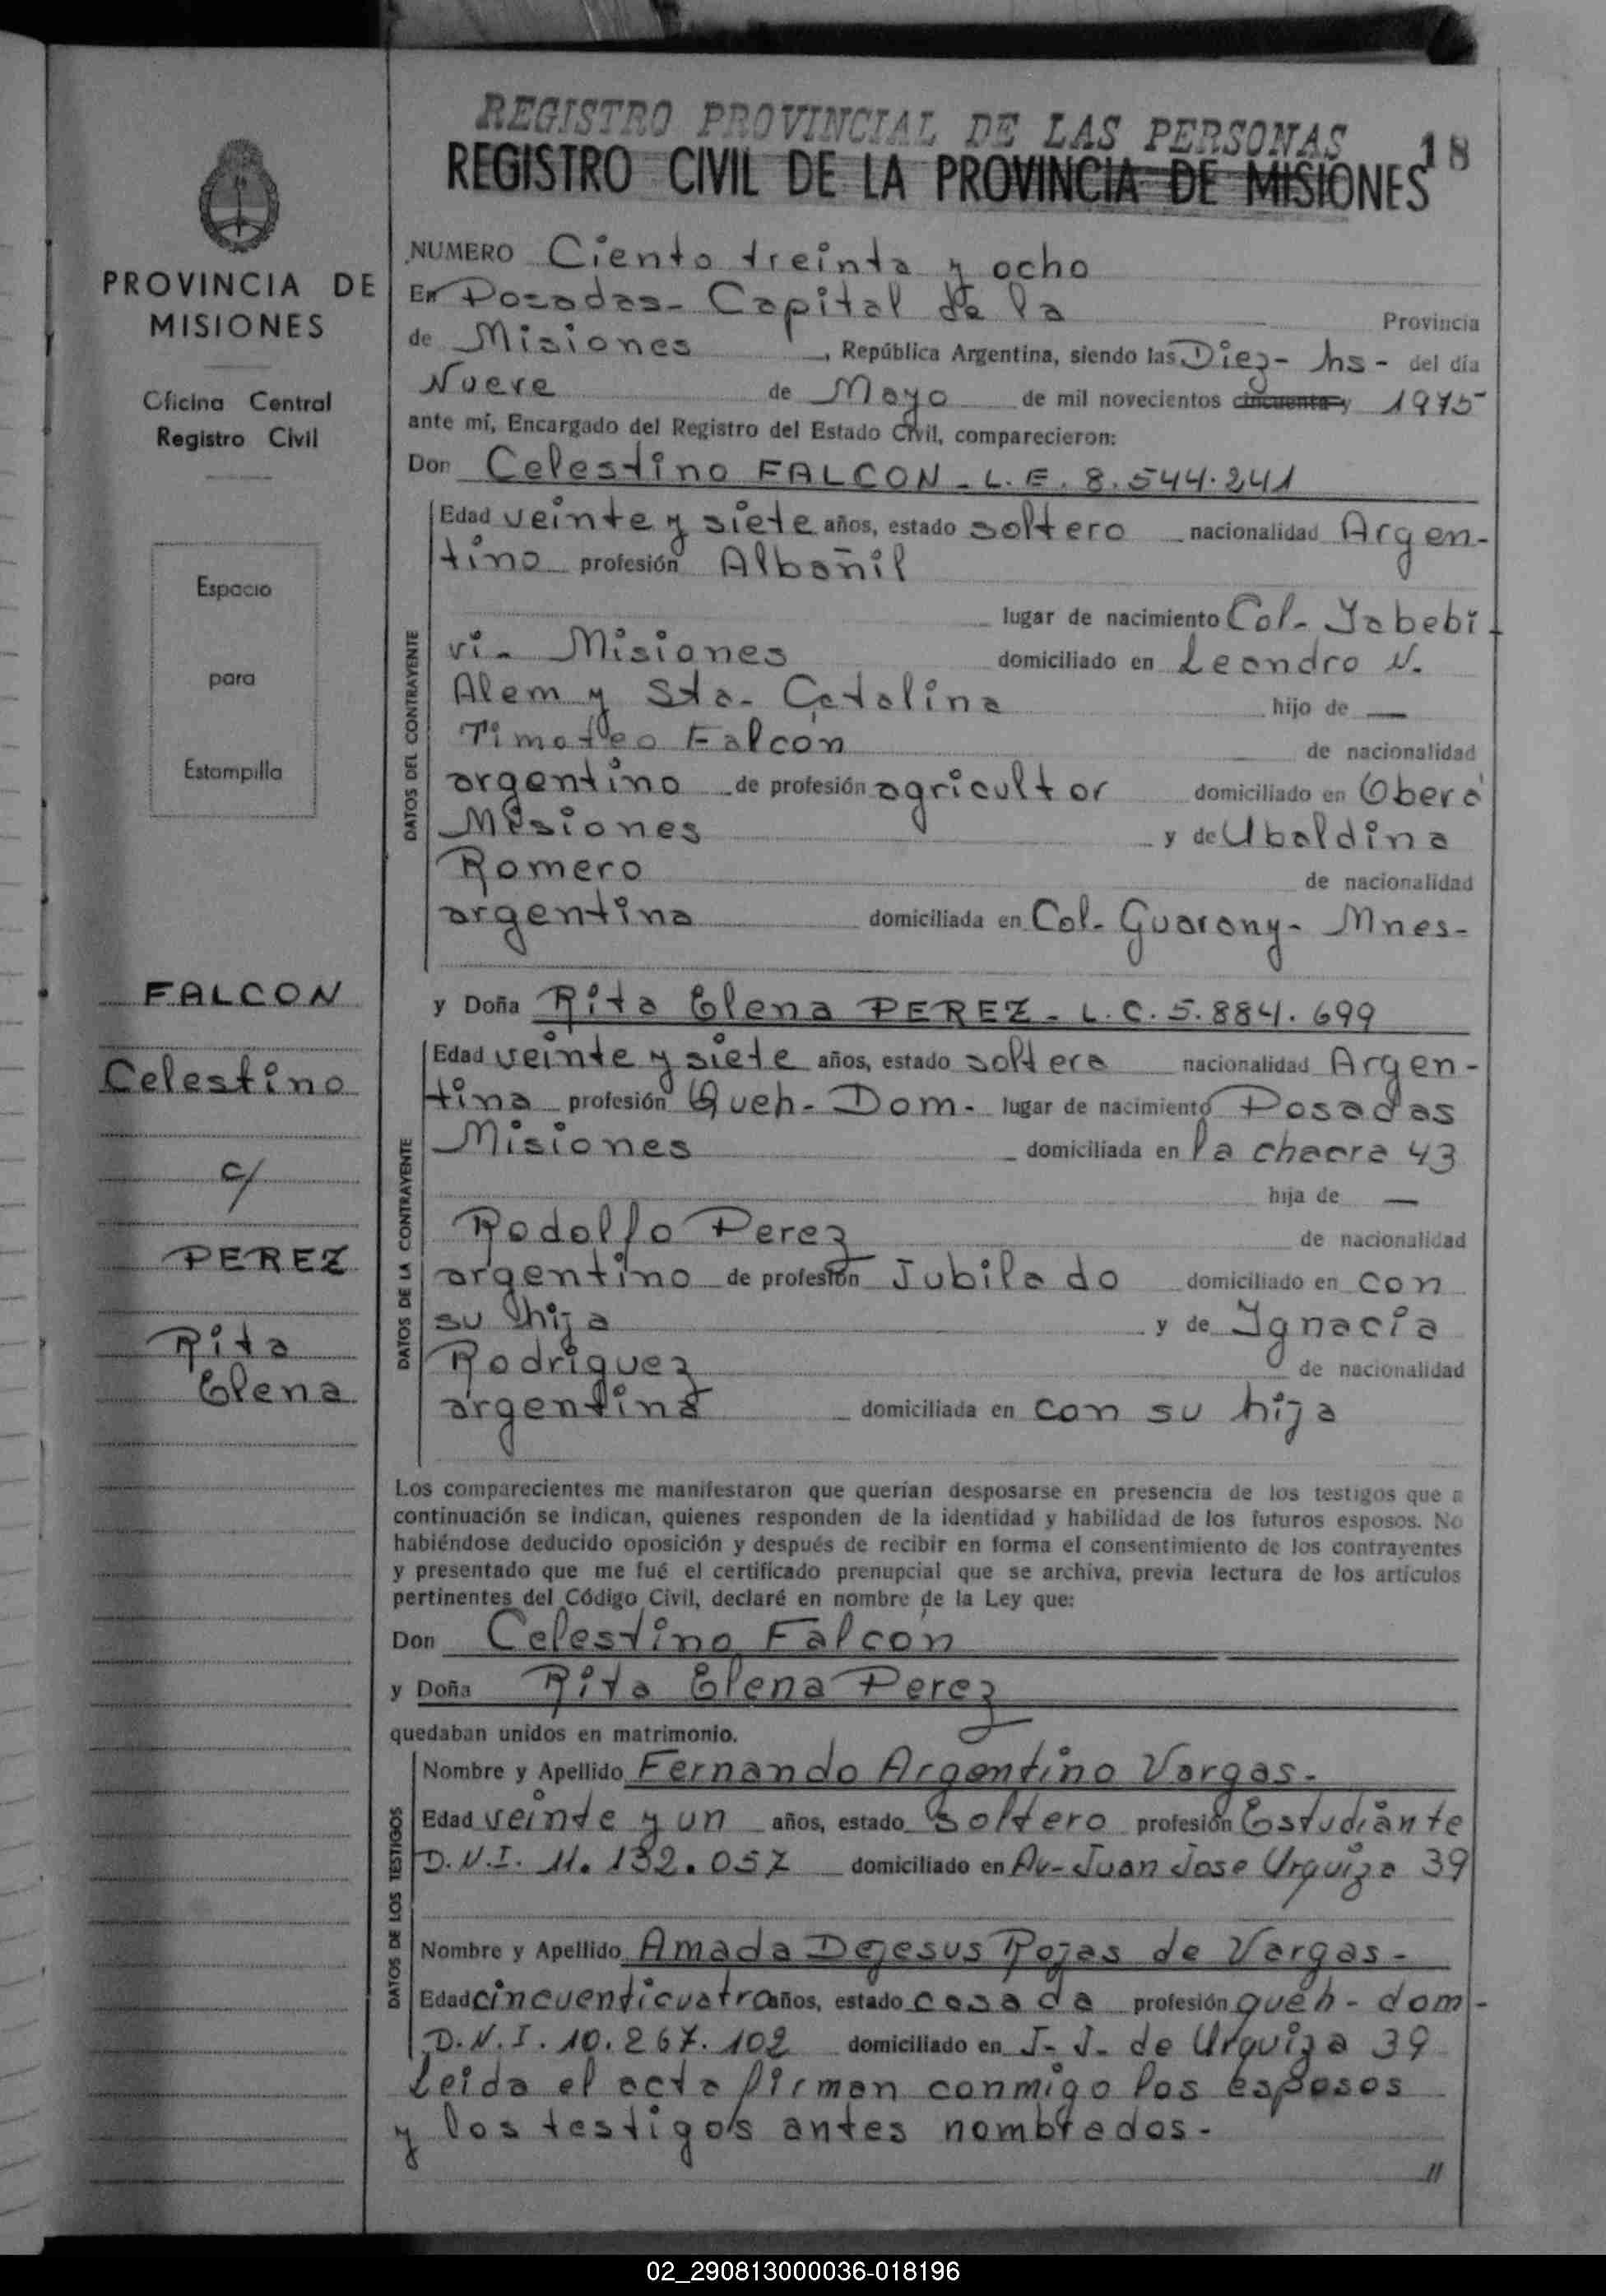 REGISTRO PROVINCIAL DE LAS PERSONAS
18
REGISTRO CIVIL DE LA PROVINCIA DE MISIONES
PROVINCIA DE
MISIONES
Oficina Central
Registro Civil
Espacio
para
Estampilla
FALCON
Celestino
c/
PEREZ
Rita
Elena
NUMERO Ciento treinta y ocho
En Posadas- Capital de la Provincia
de Misiones, República Argentina, siendo las Diez- hs- del día
Nueve de Mayo de mil novecientos cincuenta y 1975
ante mí, Encargado del Registro del Estado Civil, comparecieron:
Don Celestino FALCON - L.E. 8.544.241
DATOS DEL CONTRAYENTE
Edad veinte y siete años, estado soltero nacionalidad Argen-
tino profesión Albañil
lugar de nacimiento Col- Yabebi
vi- Misiones domiciliado en Leandro N.
Alem y Sta- Catalina hijo de —
Timoteo Falcon de nacionalidad
argentino de profesión agricultor domiciliado en Oberá
Misiones y de Ubaldina
Romero de nacionalidad
argentina domiciliada en Col- Guarany- Mnes-
y Doña Rita Elena PEREZ - L.C. 5.884.699
DATOS DE LA CONTRAYENTE
Edad veinte y siete años, estado soltera nacionalidad Argen-
tina profesión Queh- Dom- lugar de nacimiento Posadas
Misiones domiciliada en la chacra 43
hija de —
Rodolfo Perez de nacionalidad
argentino de profesión Jubilado domiciliado en con
su hija y de Ygnacia
Rodriguez de nacionalidad
argentina domiciliada en con su hija
Los comparecientes me manifestaron que querían desposarse en presencia de los testigos que a
continuación se indican, quienes responden de la identidad y habilidad de los futuros esposos. No
habiéndose deducido oposición y después de recibir en forma el consentimiento de los contrayentes
y presentado que me fué el certificado prenupcial que se archiva, previa lectura de los artículos
pertinentes del Código Civil, declaré en nombre de la Ley que:
Don Celestino Falcon
y Doña Rita Elena Perez
quedaban unidos en matrimonio.
DATOS DE LOS TESTIGOS
Nombre y Apellido Fernando Argentino Vargas-
Edad veinte y un años, estado soltero profesión Estudiante
D.N.I. 11.132.057 domiciliado en Av- Juan Jose Urquiza 39
Nombre y Apellido Amada Dejesus Rojas de Vargas-
Edad cincuenticuatro años, estado casada profesión queh- dom-
D.N.I. 10.267.102 domiciliado en J- J- de Urquiza 39
Leida el acta firman conmigo los esposos
y los testigos antes nombrados-
//
02_290813000036-018196